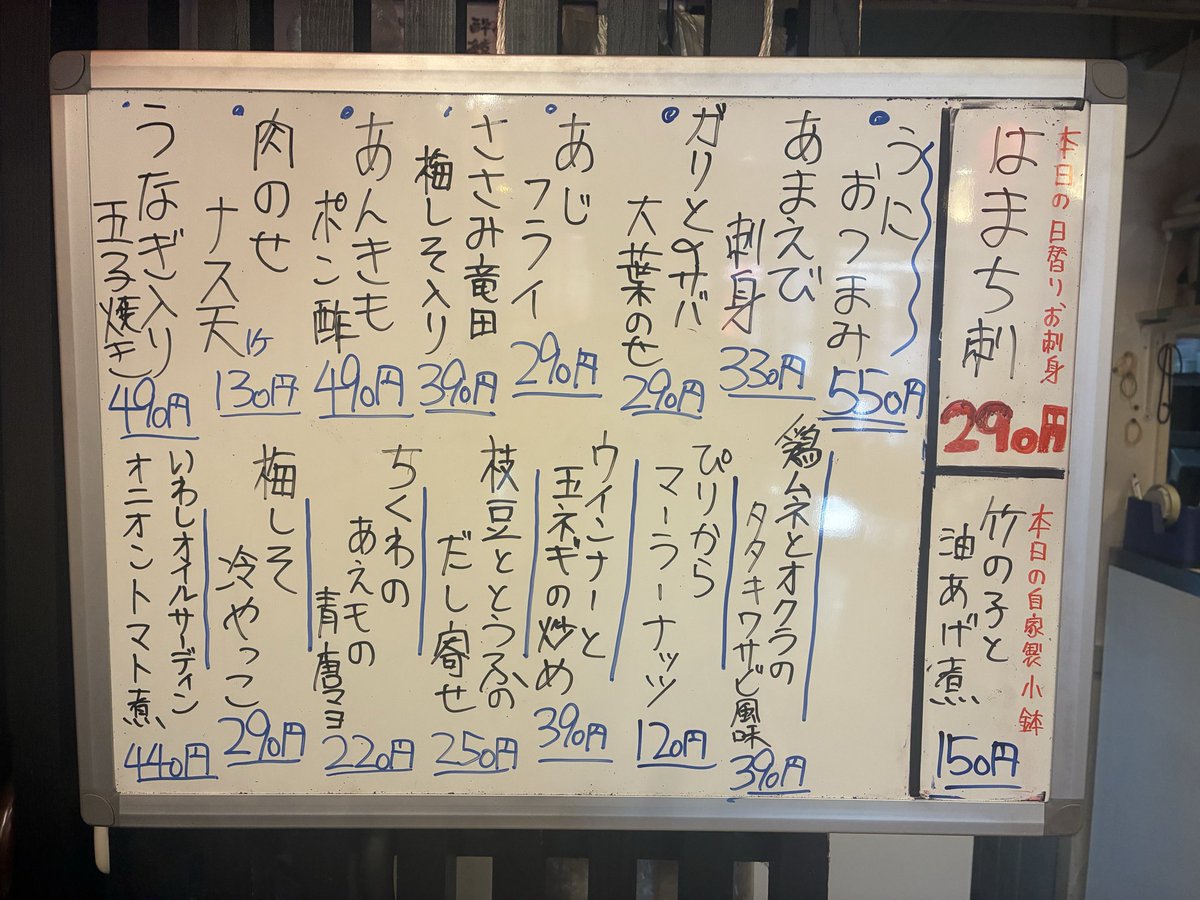 本日の日替りお刺身
はまち刺
290円
本日の自家製小鉢
竹の子と
油あげ煮
150円
うに
おつまみ
550円
あまえび
刺身
330円
ガリとサバの
大葉のせ
290円
あじ
フライ
290円
ささみ竜田
梅しそ入り
390円
あんきも
ポン酢
490円
肉のせ
ナス天
1ケ
130円
うなぎ入り
玉子焼き
490円
鶏ムネとオクラの
タタキワサビ風味
390円
ぴりから
マーラーナッツ
120円
ウインナーと
玉ネギの炒め
390円
枝豆ととうふの
だし寄せ
250円
ちくわの
あえもの
青唐マヨ
220円
梅しそ
冷やっこ
290円
いわしオイルサーディン
オニオントマト煮
440円